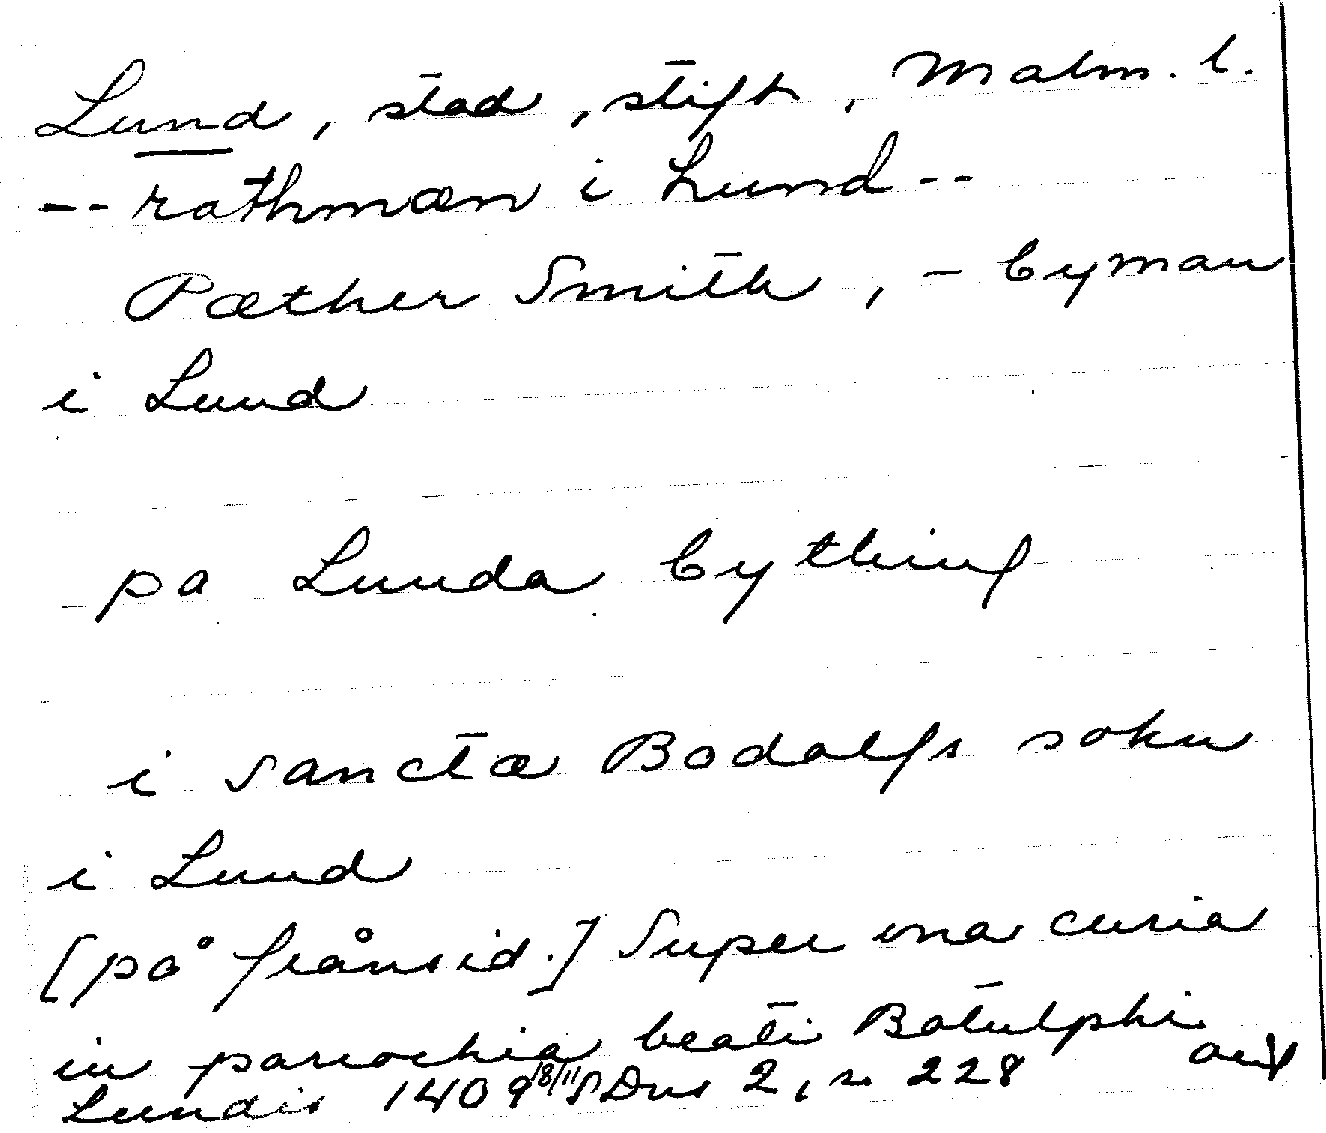 Lund, stad, stift, Malm. l.
-- rathmæn i Lund --
Pæther Smith, - byman
i Lund
pa Lunda bything
i sanctæ Bodolfs sokn
i Lund
[på frånsid.] Super una curia
in parrochia beati Botulphi
Lundis 1409 18/11 SDns 2, n 228 orig